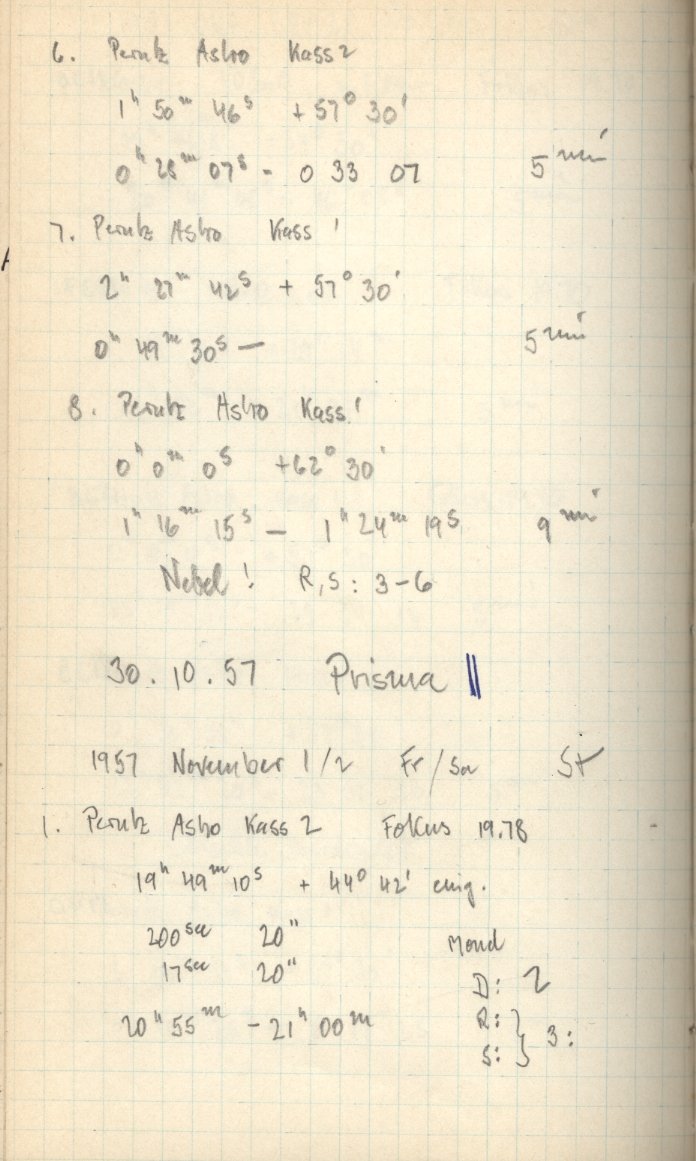 6. Perutz Astro Kass 2
1ʰ 50ᵐ 46ˢ + 57° 30'
0ʰ 28ᵐ 07ˢ - 0 33 07 5 min
7. Perutz Astro Kass 1
2ʰ 27ᵐ 42ˢ + 57° 30'
0ʰ 49ᵐ 30ˢ — 5 min
8. Perutz Astro Kass 1
0ʰ 0ᵐ 0ˢ +62° 30'
1ʰ 16ᵐ 15ˢ — 1ʰ 24ᵐ 19ˢ 9 min
Nebel! R, S: 3-6
30.10.57 Prisma ||
1957 November 1/2 Fr/Sa St
1. Perutz Astro Kass 2 Fokus 19.78
19ʰ 49ᵐ 10ˢ + 44° 42'
200 sec 20"
17 sec 20"
Mond
D: 2
20ʰ 55ᵐ - 21ʰ 00ᵐ
R: } 3:
S: